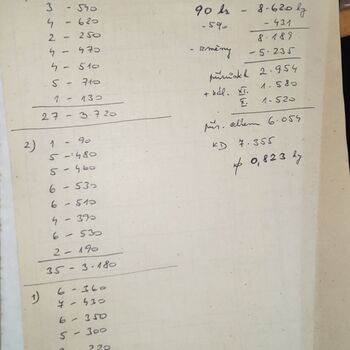 3 - 540
4 - 620
2 - 250
4 - 470
4 - 510
5 - 710
1 - 130
27 - 3.720
2) 1 - 90
5 - 480
5 - 460
6 - 530
6 - 510
4 - 390
6 - 530
2 - 190
35 - 3.180
1) 6 - 360
7 - 430
6 - 350
5 - 300
220
90 ks - 8.620 kg
- 5% - 431
8.189
- změny - 5.235
přírůstek 2.954
+ kdl. XI. 1.580
X. 1.520
přír. celkem 6.054
KD 7.355
ø 0,823 kg